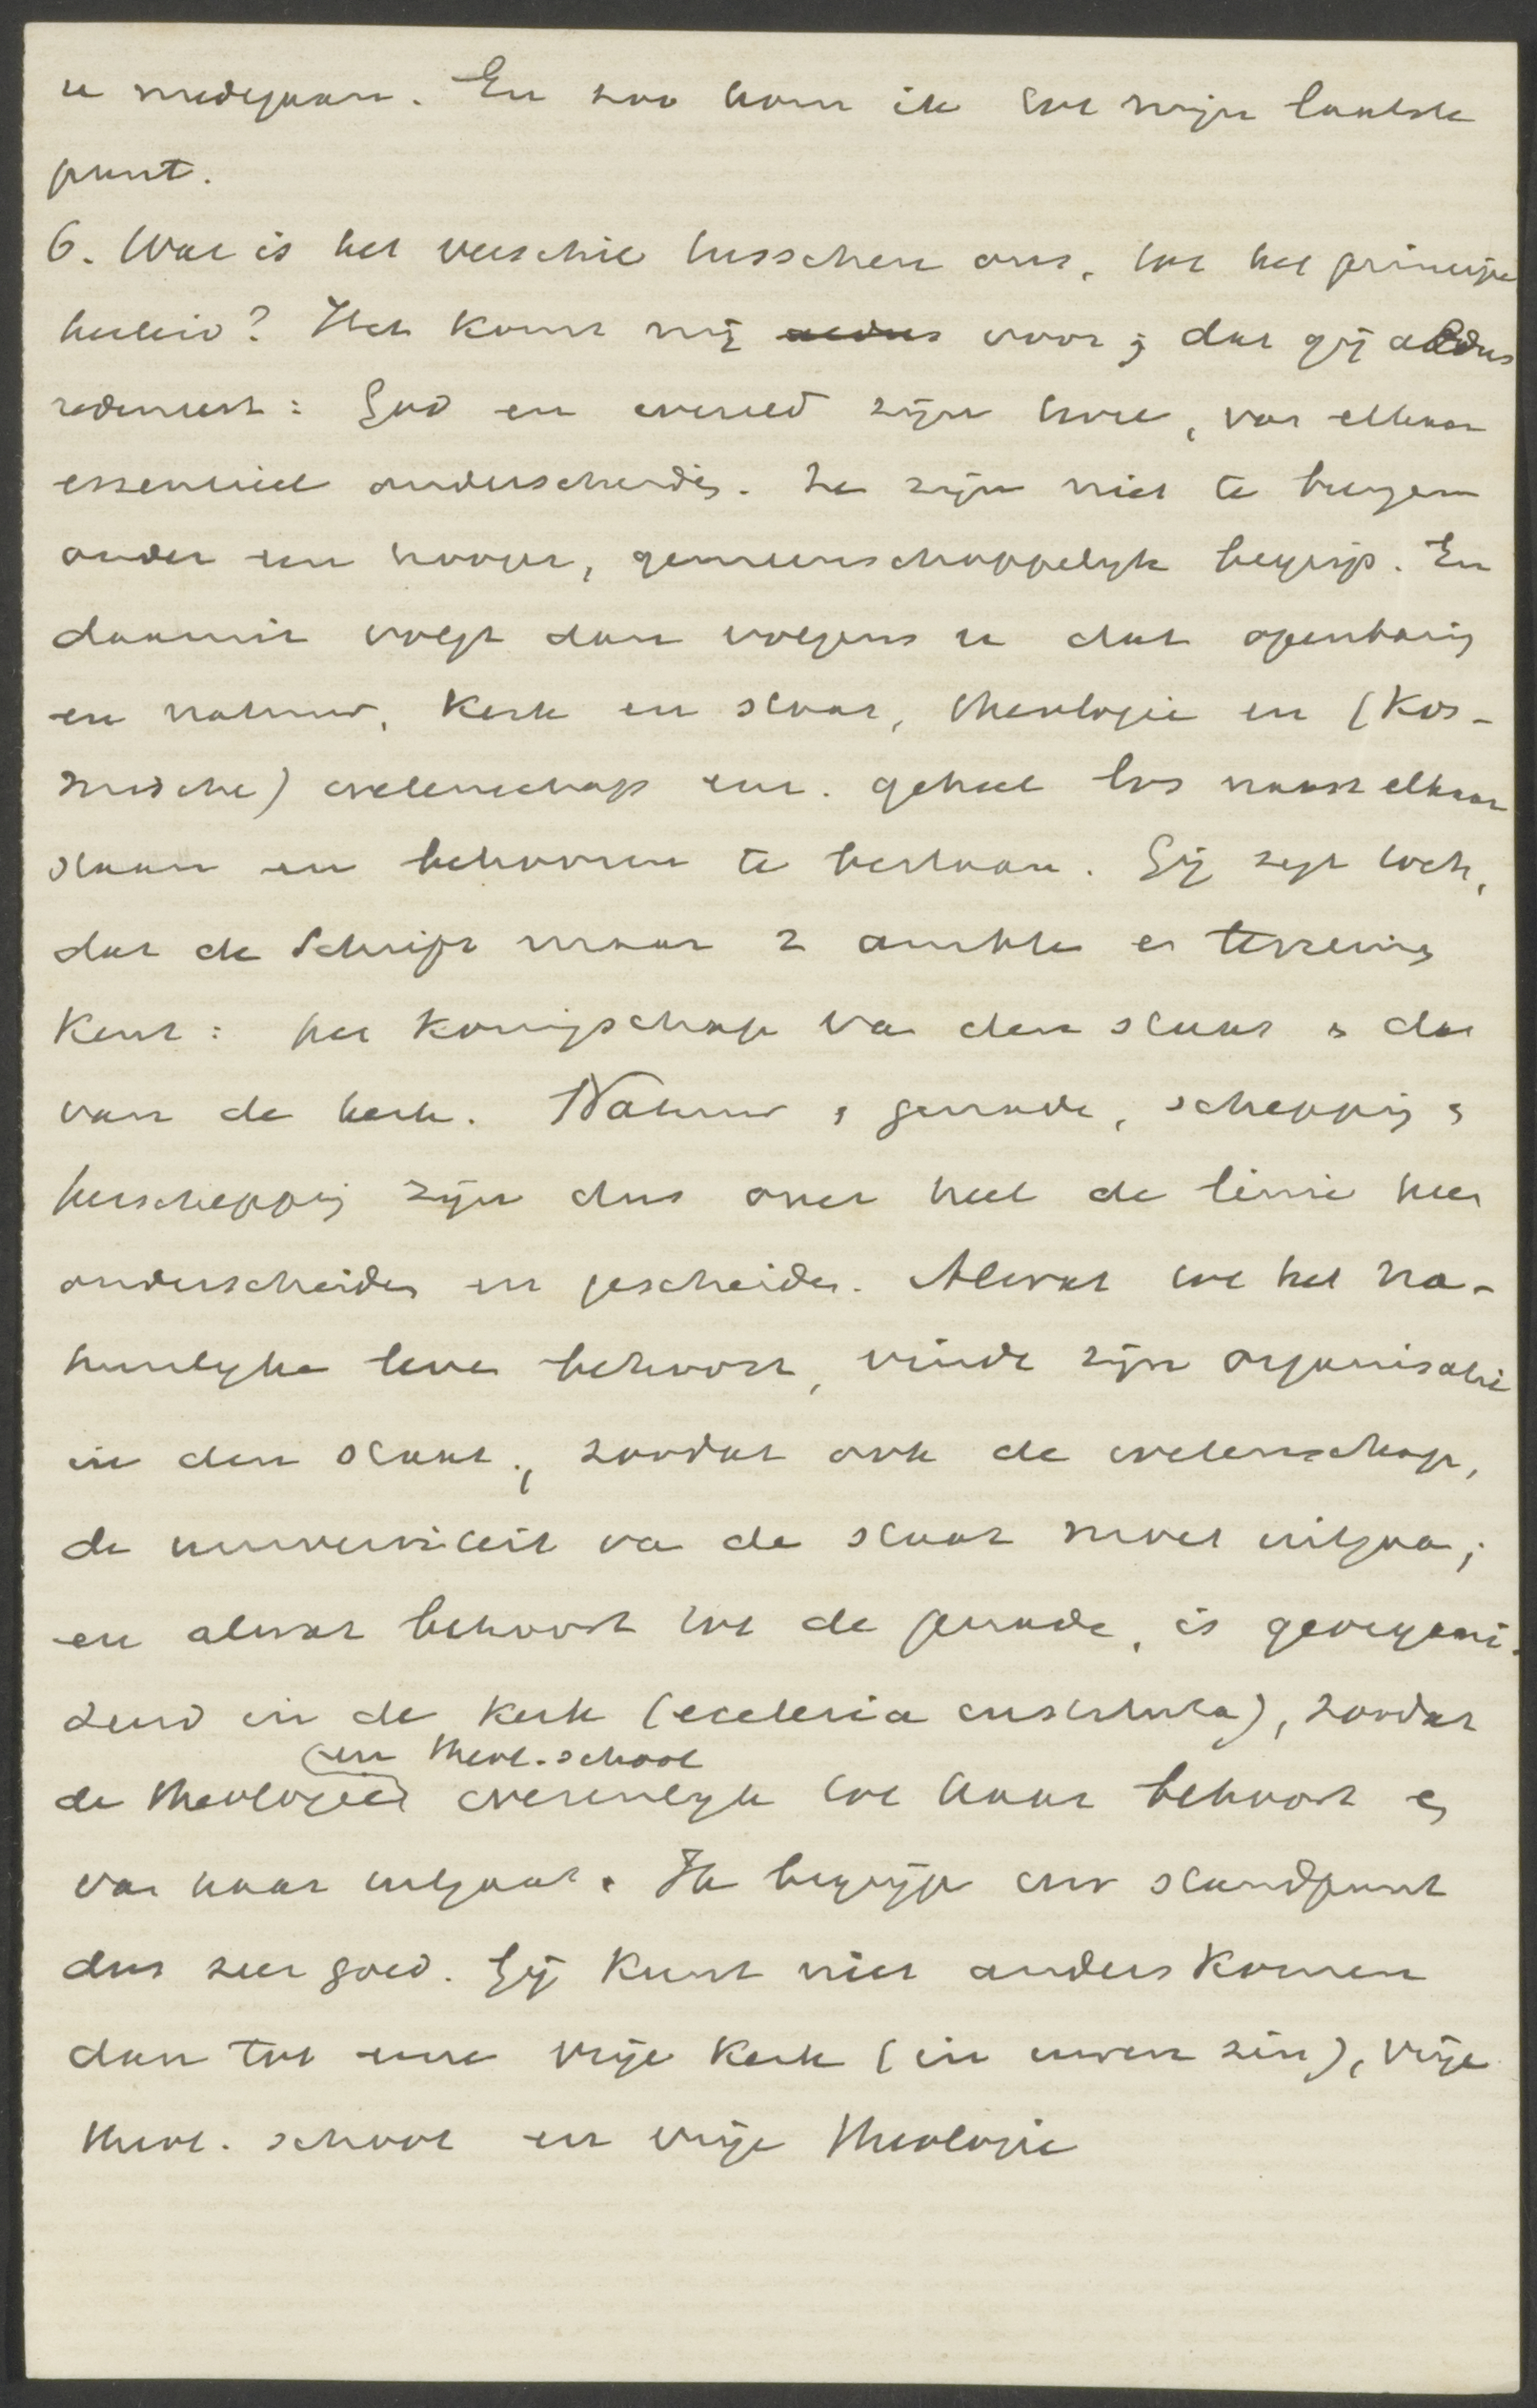 u medegaan. En zoo kom ik tot mijn laatste
punt.
6. Wat is het verschil tusschen ons, tot het principe
herleid? Het komt mij aldus voor, dat gij aldus
redeneert: God en wereld zijn twee, van elkaar
essentieel onderscheiden. Ze zijn niet te brengen
onder een hooger, gemeenschappelijk begrip. En
daaruit volgt dan volgens u dat openbaring
en natuur, kerk en staat, theologie en (kos-
mische) wetenschap enz. geheel los naast elkaar
staan en behooren te bestaan. Gij zegt toch,
dat de Schrift maar 2 ambten en terreinen
kent: het koningschap van den staat en dat
van de kerk. Natuur en genade, schepping en
herschepping zijn dus over heel de linie heen
onderscheiden en gescheiden. Alwat tot het na-
tuurlijke leven behoort, vindt zijn organisatie
in den staat, zoodat ook de wetenschap,
de universiteit van de staat moet uitgaan;
en alwat behoort tot de genade, is georgani-
seerd in de kerk (ecclesia instituta), zoodat
en theol. school
de theologie wezenlijk tot haar behoort en
van haar uitgaat. Ik begrijp uw standpunt
dus zeer goed. Gij kunt niet anders komen
dan tot eene vrije kerk (in uwen zin), vrije
theol. school en vrije theologie